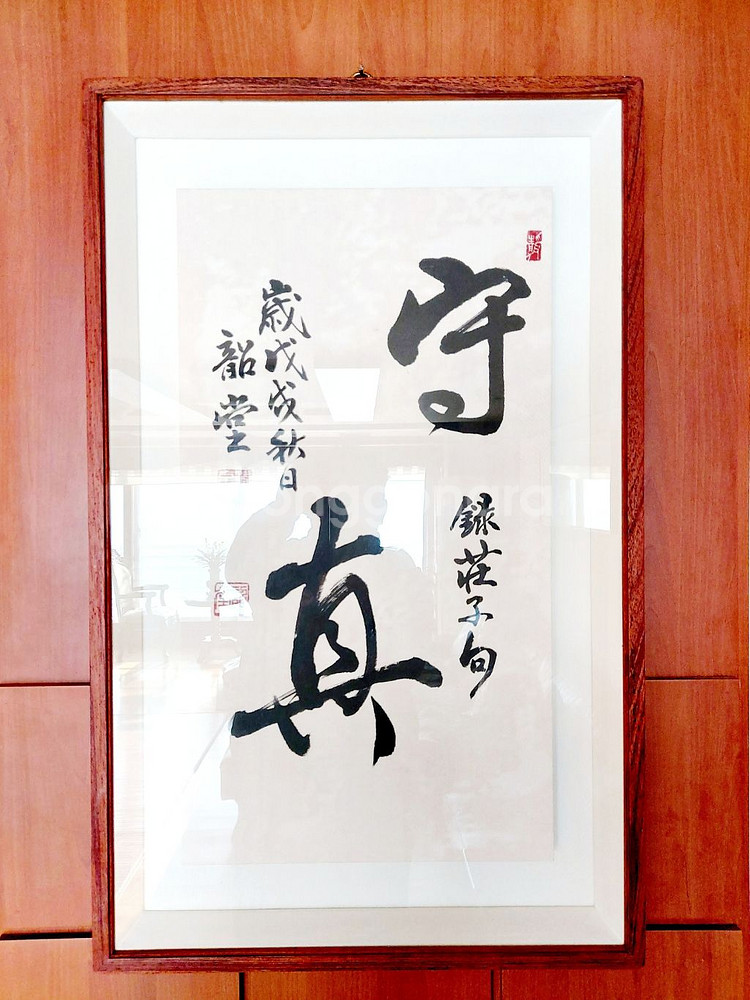 守真
錄莊子句
歲戊戌秋日
韶堂